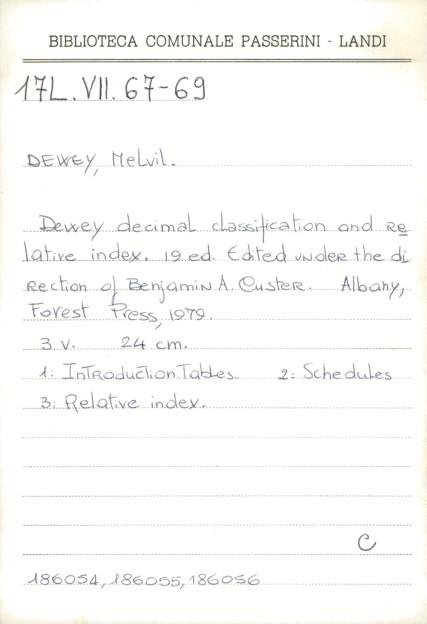 BIBLIOTECA COMUNALE PASSERINI - LANDI
17L.VII.67-69
DEWEY, Melvil.
Dewey decimal classification and re
lative index. 19 ed. Edited under the di
rection of Benjamin A. Custer. Albany,
Forest Press, 1979.
3 v. 24 cm.
1: Introduction.Tables. 2: Schedules
3: Relative index.
C
186054, 186055, 186056